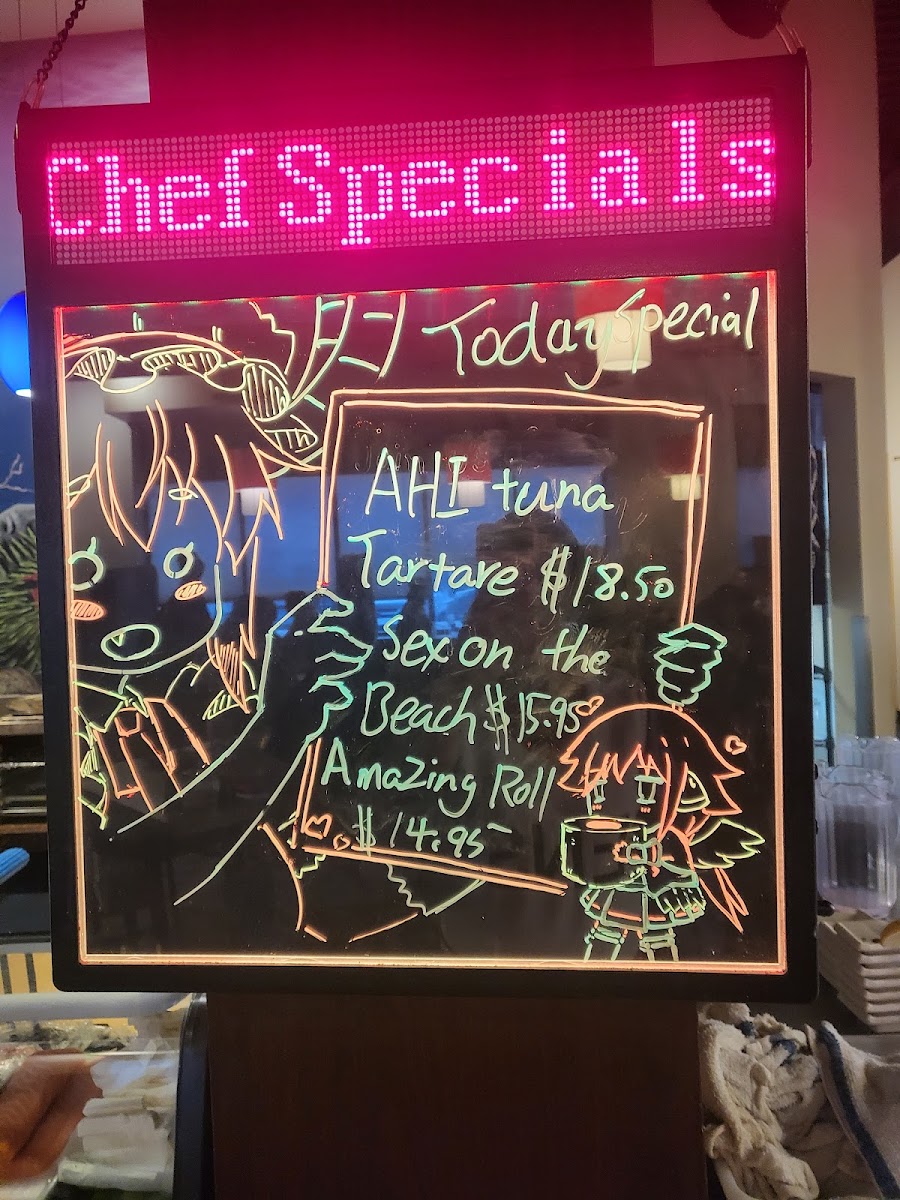 Chef Specials
Today Special
AHI tuna
Tartare $18.50
Sex on the
Beach $15.95
Amazing Roll
$14.95